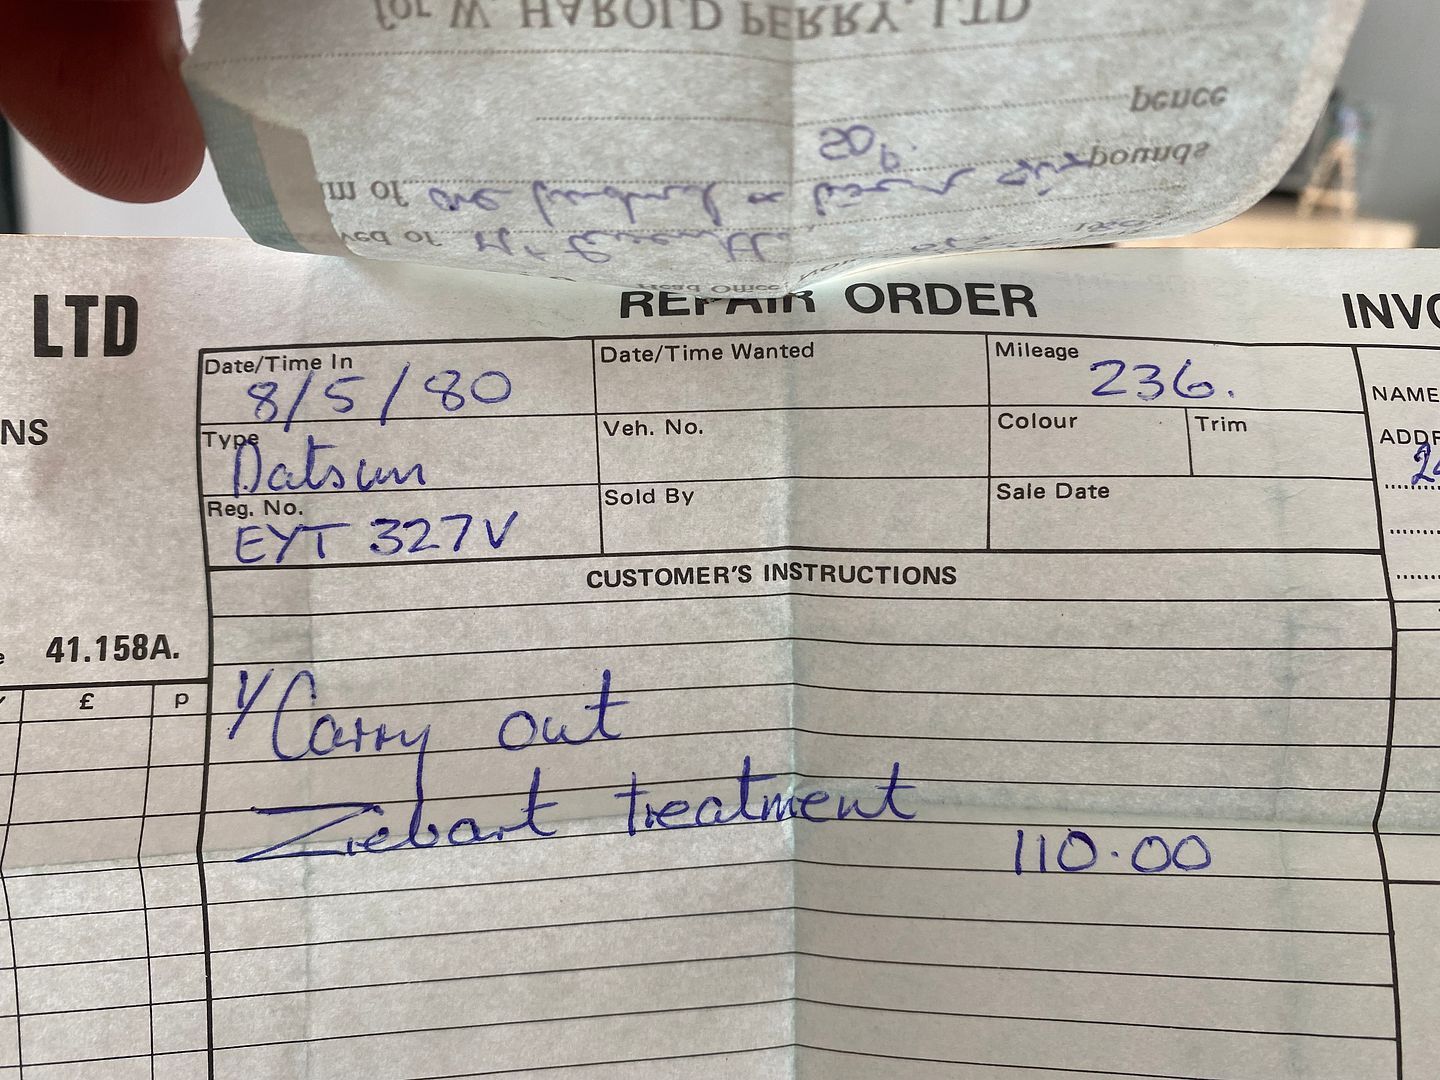 for W. HAROLD PERRY, LTD
pence
50p.
pounds
m of one hundred &
ved of
Head Office
LTD
REPAIR ORDER
INVO
Date/Time In
8/5/80
Date/Time Wanted
Mileage
236.
NAME
NS
Type
Datsun
Veh. No.
Colour
Trim
ADDR
24
Reg. No.
EYT 327V
Sold By
Sale Date
CUSTOMER'S INSTRUCTIONS
41.158A.
£
p
1/ Carry out
Ziebart treatment
110.00